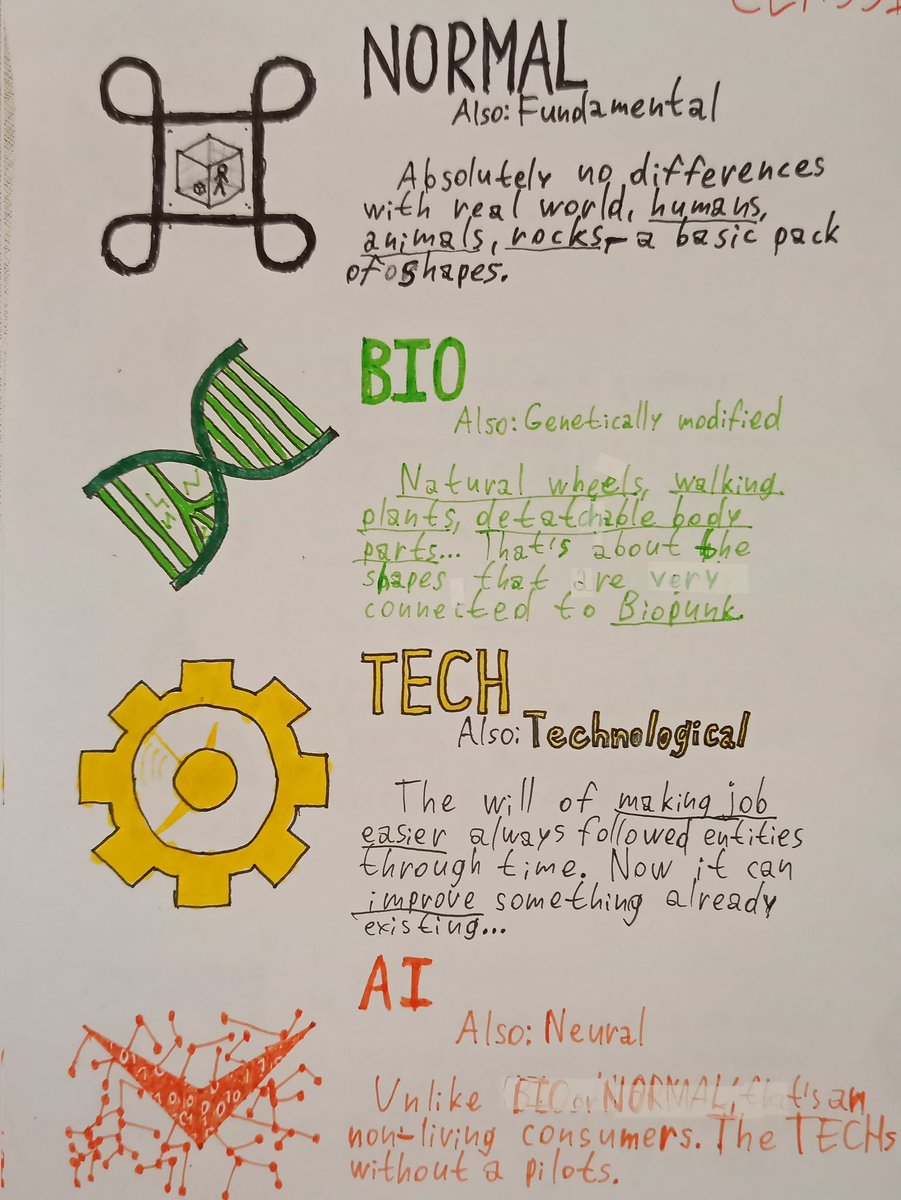 CLASSI
NORMAL
Also: Fundamental
Absolutely no differences
with real world, humans,
animals, rocks - a basic pack
of shapes.
BIO
Also: Genetically modified
Natural wheels, walking
plants, detatchable body
parts... That's about the
shapes that are very
connected to Biopunk.
TECH
Also: Technological
The will of making job
easier always followed entities
through time. Now it can
improve something already
existing...
AI
Also: Neural
Unlike BIO or 'NORMAL', that's an
non-living consumers. The TECHs
without a pilots.